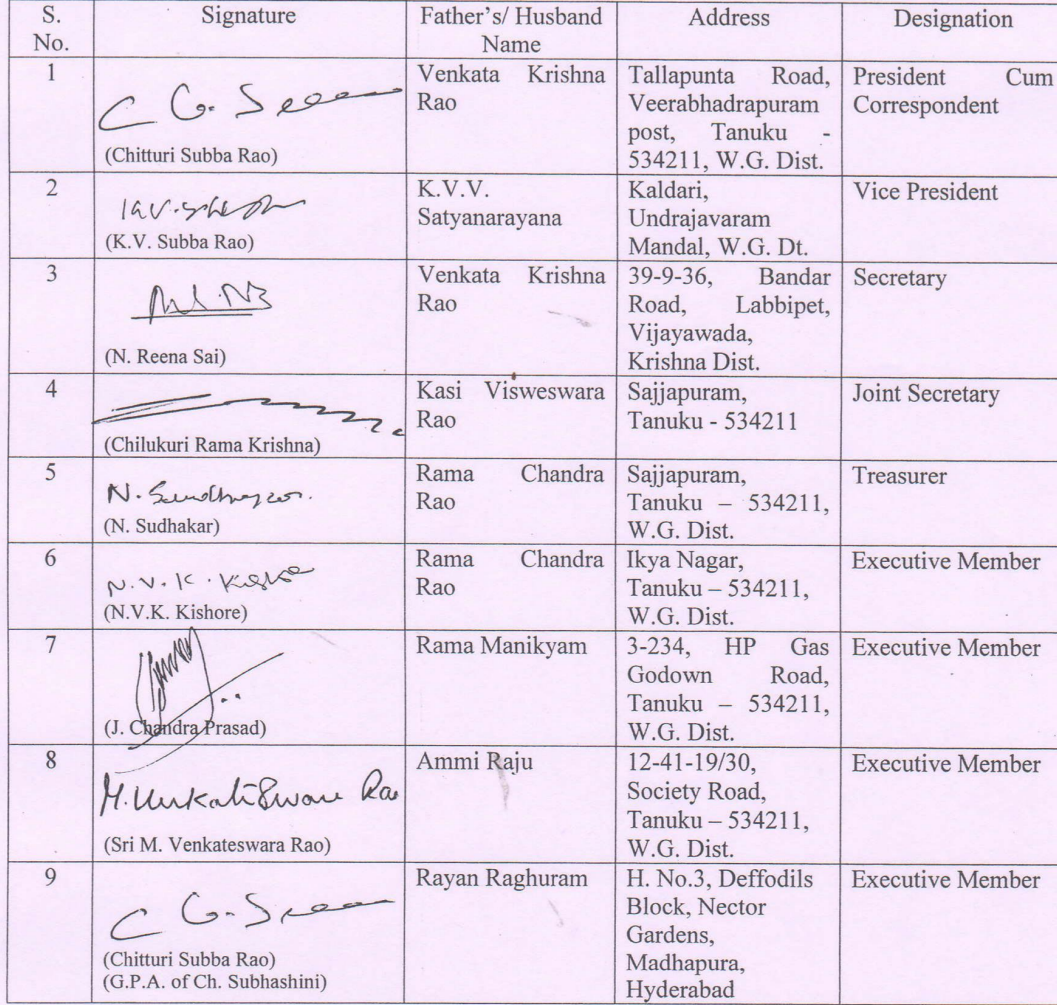 S. No. Signature Father's/ Husband Name Address Designation
1
C G. S
(Chitturi Subba Rao)
Venkata Krishna
Rao
Tallapunta Road,
Veerabhadrapuram
post, Tanuku -
534211, W.G. Dist.
President Cum
Correspondent
2
(K.V. Subba Rao)
K.V.V.
Satyanarayana
Kaldari,
Undrajavaram
Mandal, W.G. Dt.
Vice President
3
(N. Reena Sai)
Venkata Krishna
Rao
39-9-36, Bandar
Road, Labbipet,
Vijayawada,
Krishna Dist.
Secretary
4
(Chilukuri Rama Krishna)
Kasi Visweswara
Rao
Sajjapuram,
Tanuku - 534211
Joint Secretary
5
N.
(N. Sudhakar)
Rama Chandra
Rao
Sajjapuram,
Tanuku – 534211,
W.G. Dist.
Treasurer
6
N.V.K. Kishore
(N.V.K. Kishore)
Rama Chandra
Rao
Ikya Nagar,
Tanuku – 534211,
W.G. Dist.
Executive Member
7
(J. Chandra Prasad)
Rama Manikyam
3-234, HP Gas
Godown Road,
Tanuku – 534211,
W.G. Dist.
Executive Member
8
M. Venkateswara Rao
(Sri M. Venkateswara Rao)
Ammi Raju
12-41-19/30,
Society Road,
Tanuku – 534211,
W.G. Dist.
Executive Member
9
C G. S
(Chitturi Subba Rao)
(G.P.A. of Ch. Subhashini)
Rayan Raghuram
H. No.3, Deffodils
Block, Nector
Gardens,
Madhapura,
Hyderabad
Executive Member